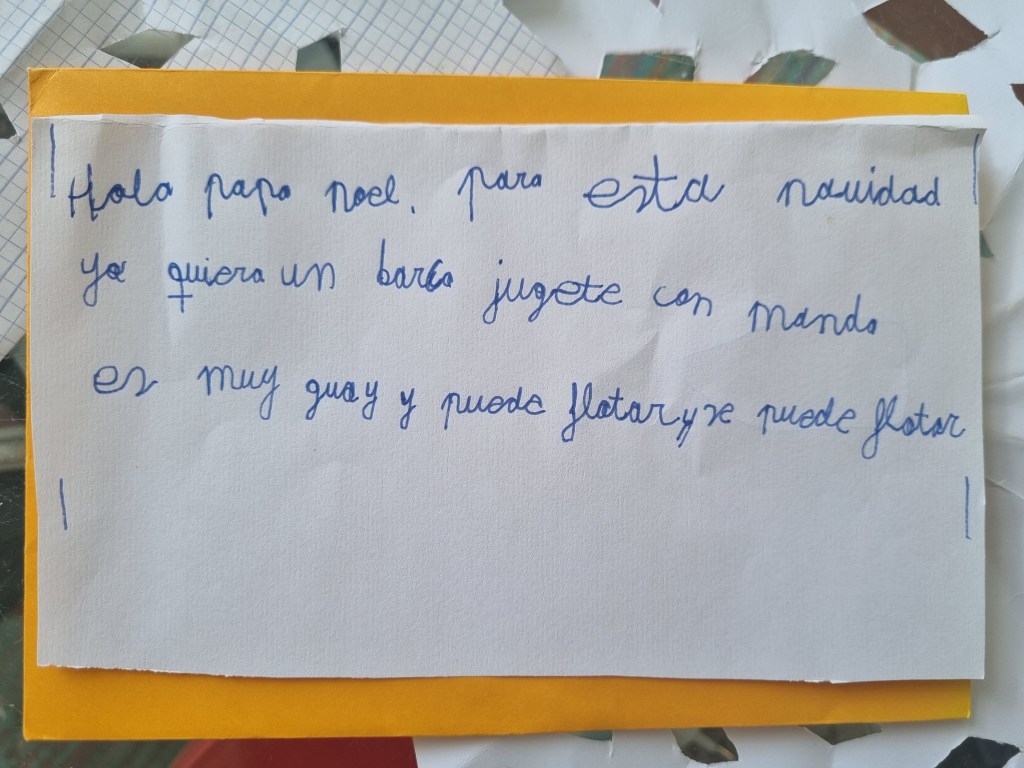 Hola papa noel. para esta navidad
yo quiero un barco jugete con mando
es muy guay y puede flotar y se puede flotar